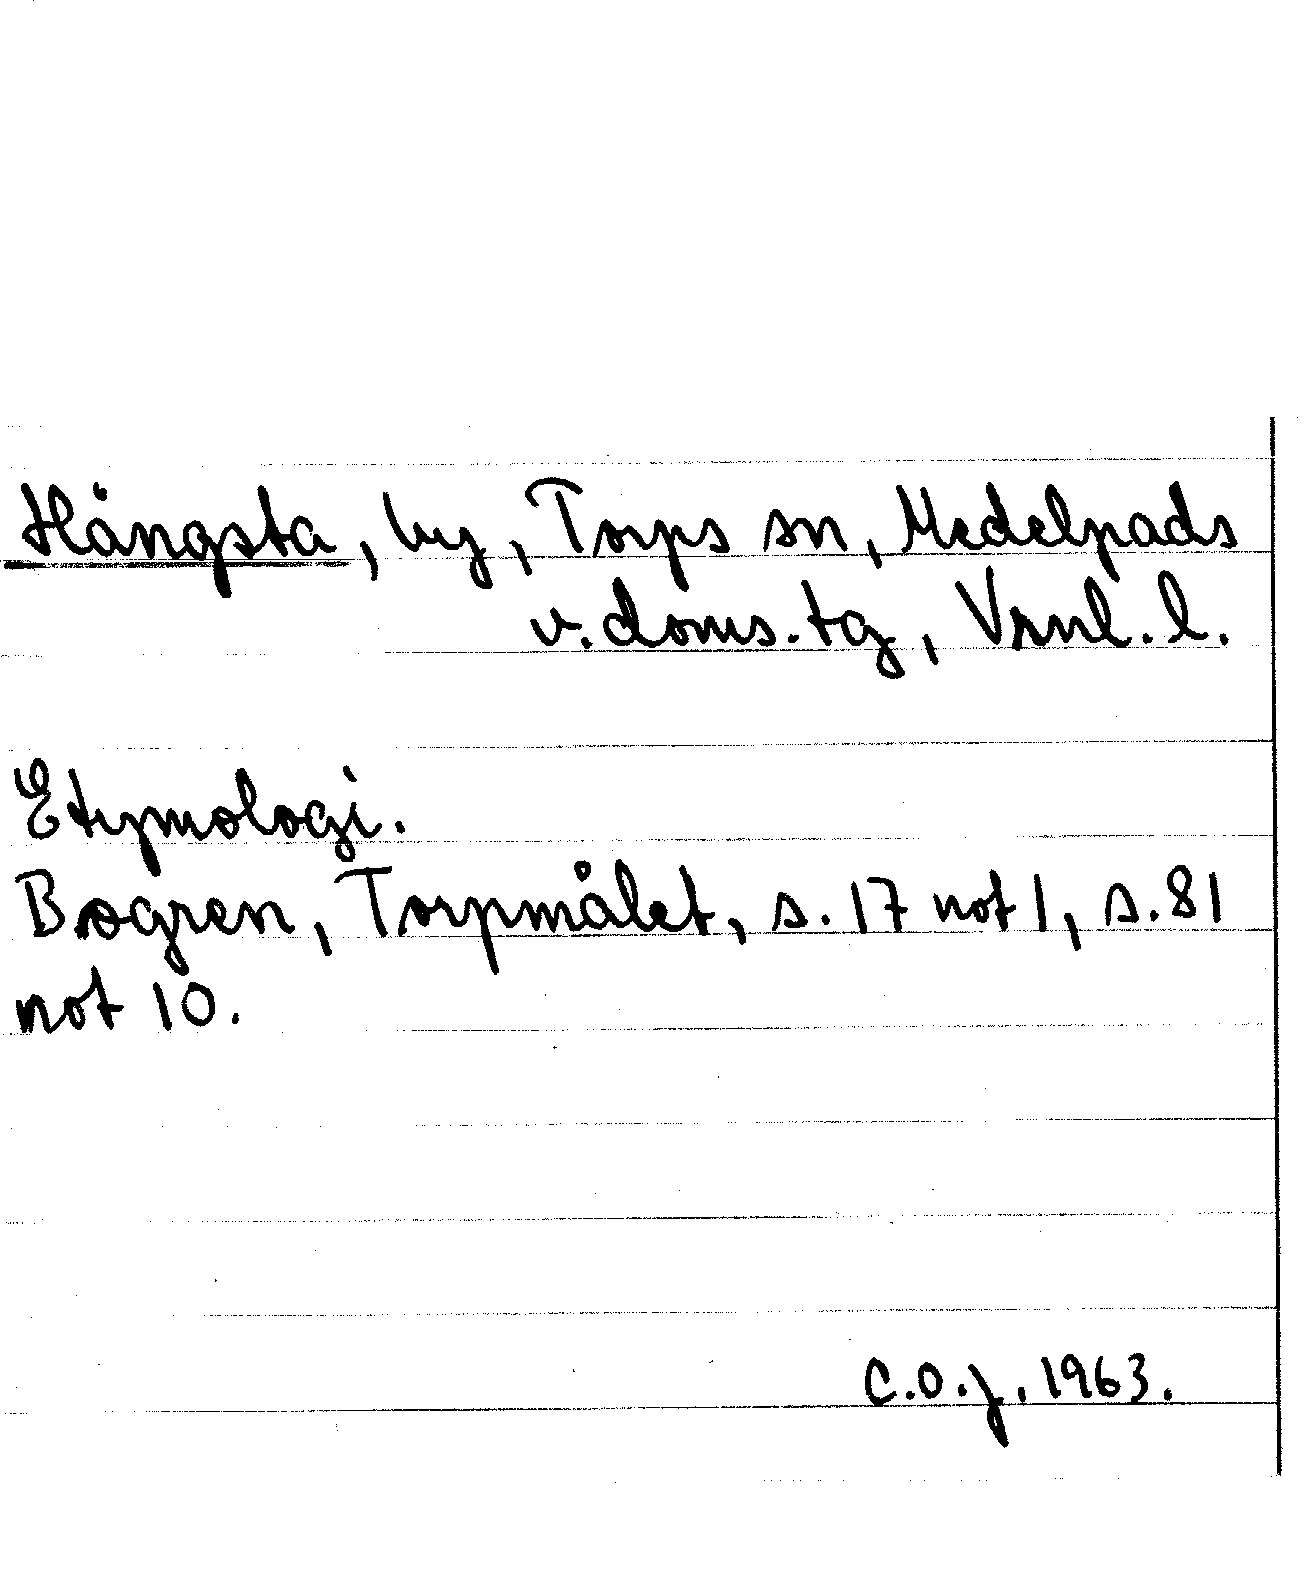 Hångsta, by, Torps sn, Medelpads
v. doms. tg, Vrnl. l.
Etymologi.
Bogren, Torpmålet, s. 17 not 1, s. 81
not 10.
C.O.J. 1963.